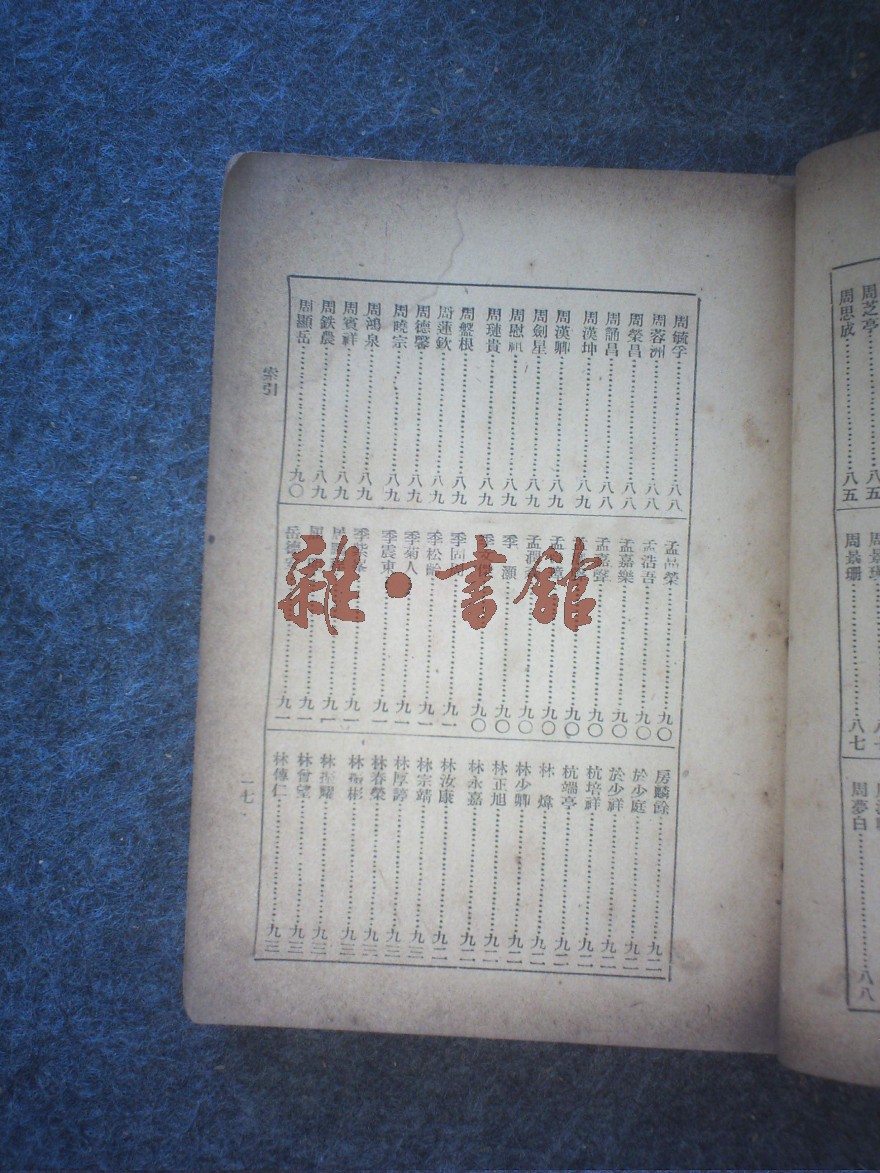 周芝亭……八五
周思成……八五
周景瑞
周景珊……八七
周夢白……八八
周毓孚……八八
周蓉洲……八八
周榮昌……八八
周誦昌……八八
周漢坤……八八
周漢卿……八九
周劍星……八九
周慰祖……八九
周璉貴……八九
周盤根……八九
周蓮欽……八九
周德馨……八九
周曉宗……八九
周鴻泉……八九
周賓祥……八九
周鉄農……八九
周顯岳……九〇
孟榮……九〇
孟浩吾……九〇
孟嘉樂……九〇
孟嘉聲……九〇
孟……九〇
孟……九〇
孟潤……九〇
季 灝……九〇
季……九〇
季……九一
季松齡……九一
季菊人……九一
季震東……九一
季……九一
九一
九一
岳德……九一
房麟餘……九二
於少庭……九二
於少祥……九二
杭培祥……九二
杭端亭……九二
林 煒……九二
林少卿……九二
林正旭……九二
林永嘉……九二
林汝康……九二
林宗靖……九三
林厚諄……九三
林春榮……九三
林振彬……九三
林耀……九三
林曾望……九三
林傳仁……九三
索引
一七
雜·書館